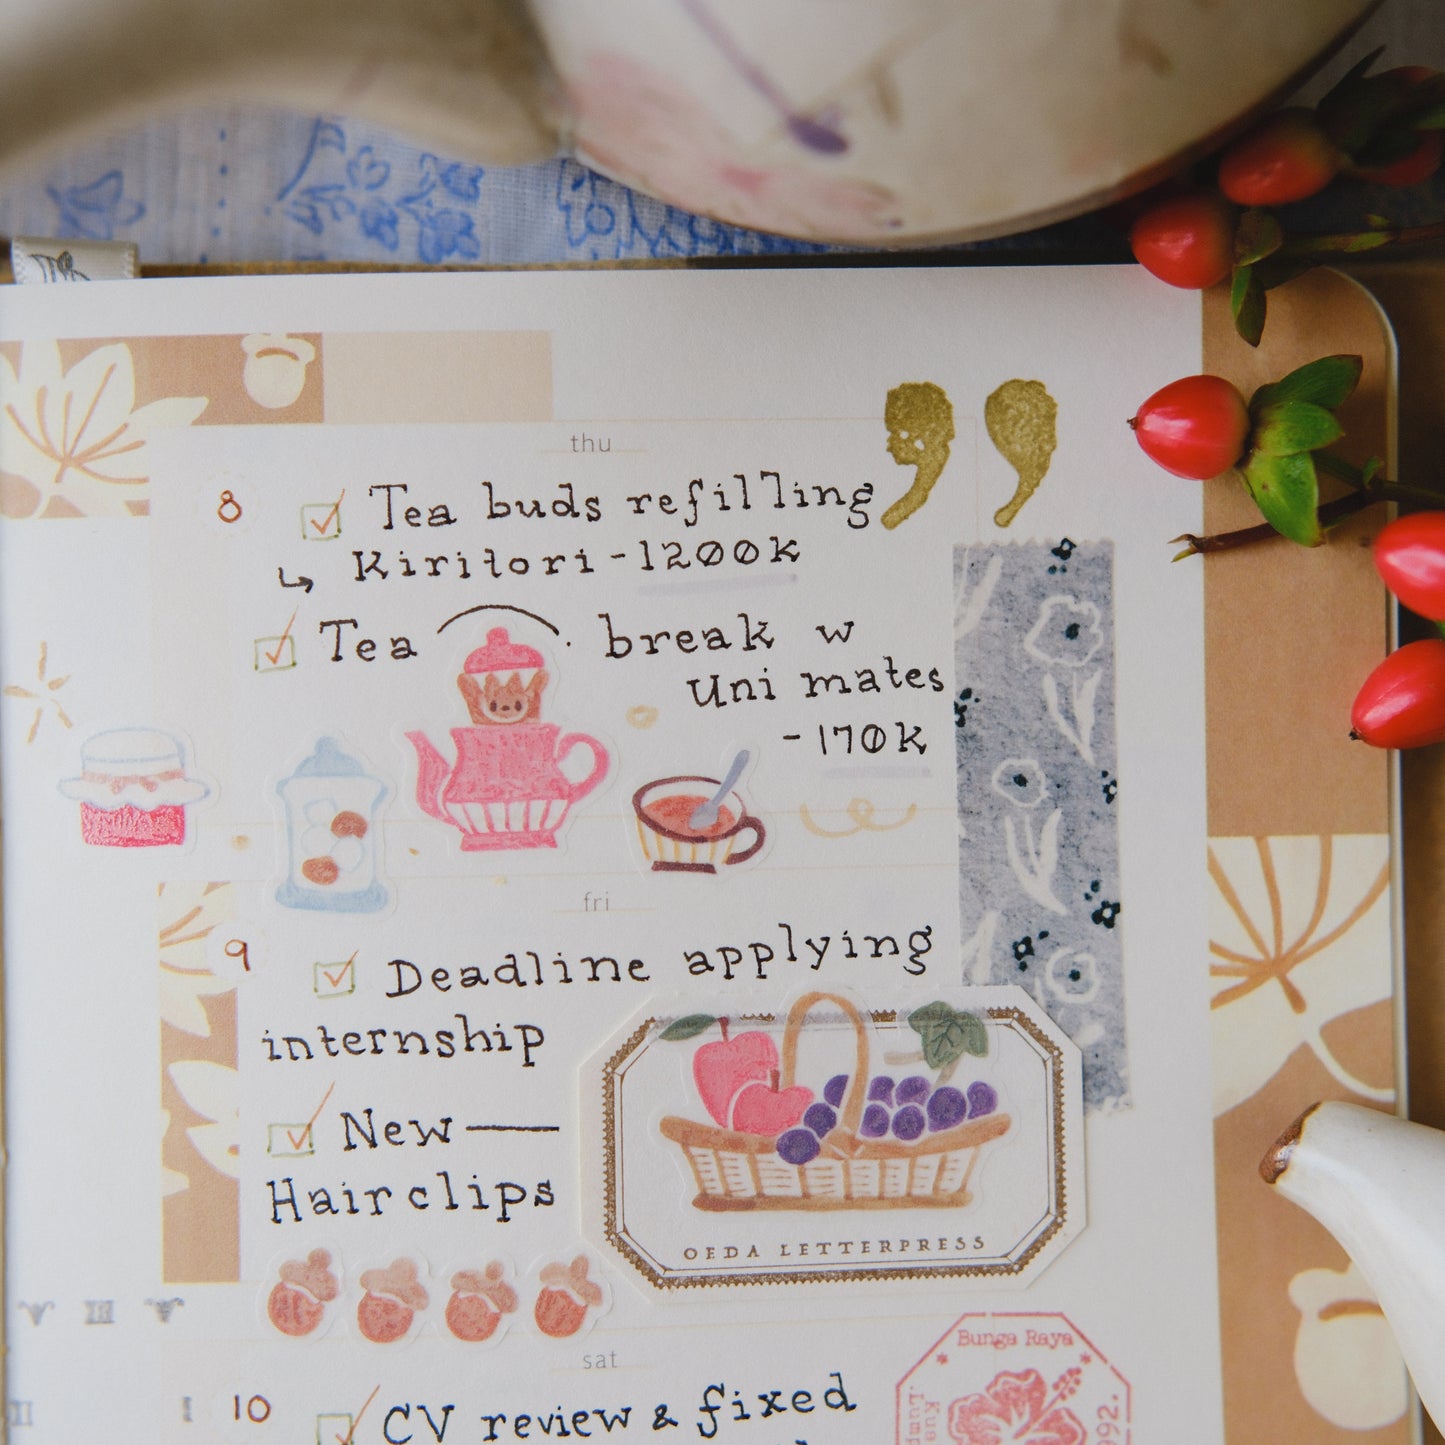 thu
8 Tea buds refilling
Kiritori - 1200k
Tea break w
Uni mates
- 170k
fri
9 Deadline applying
internship
New
Hair clips
OEDA LETTERPRESS
sat
Bunga Raya
10 CV review & fixed